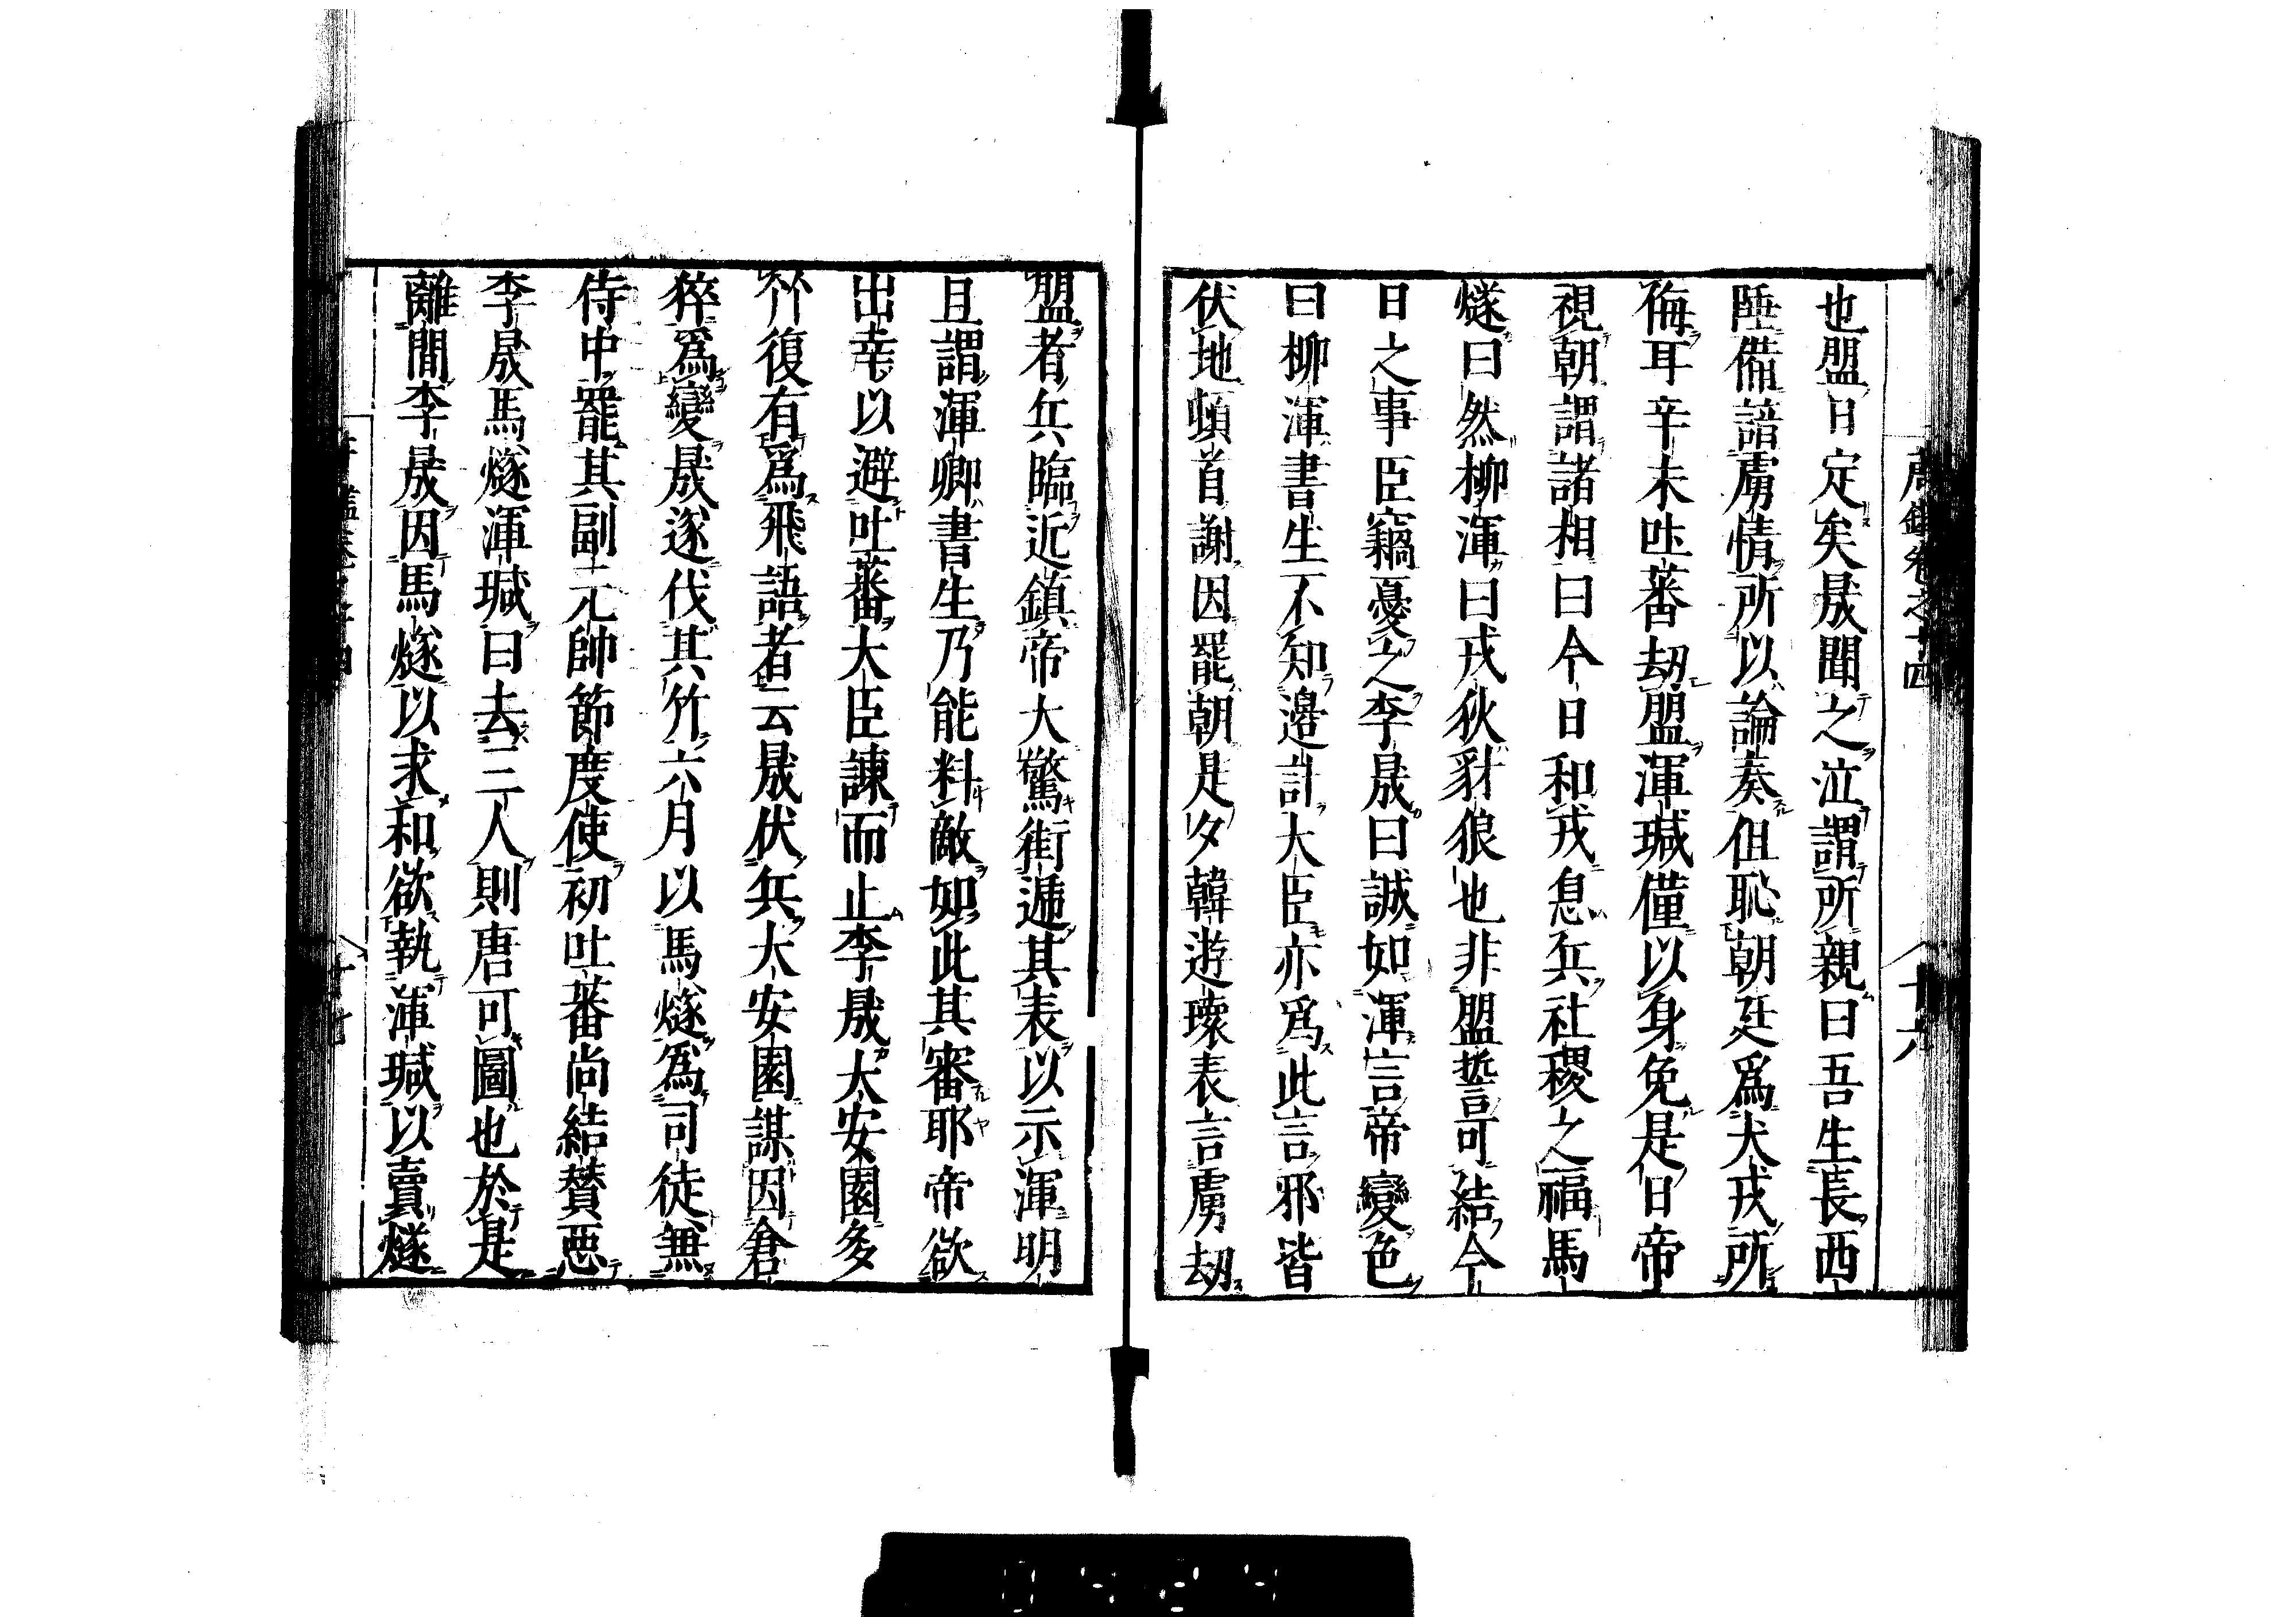 唐鑑卷之十四
十六
也盟日定矣晟聞之泣謂所親曰吾生長西
陲備諳虜情所以論奏但恥朝廷爲犬戎所
侮耳辛未吐蕃劫盟渾瑊僅以身免是日帝
視朝謂諸相曰今日和戎息兵社稷之福馬
燧曰然柳渾曰戎狄豺狼也非盟誓可結今
日之事臣竊憂之李晟曰誠如渾言帝變色
曰柳渾書生不知邊計大臣亦爲此言邪皆
伏地頓首謝因罷朝是夕韓遊瓌表言虜劫
盟者兵臨近鎮帝大驚街遞其表以示渾明
且謂渾卿書生乃能料敵如此其審耶帝欲
出幸以避吐蕃大臣諫而止李晟大安園多
竹復有爲飛語者云晟伏兵大安園謀因倉
猝爲變晟遂伐其竹六月以馬燧爲司徒兼
侍中罷其副元帥節度使初吐蕃尚結贊惡
李晟馬燧渾瑊曰去三人則唐可圖也於是
離間李晟因馬燧以求和欲執渾瑊以賣燧